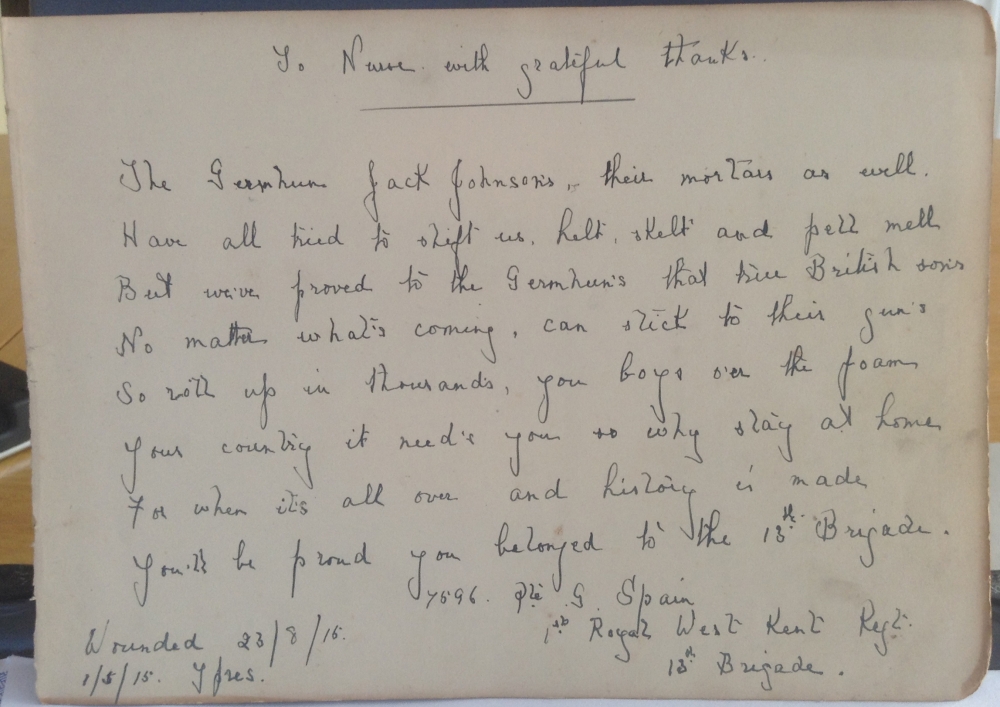 To Nurse. with grateful thanks.
The Germhuns Jack Johnson's, their mortars as well.
Have all tried to shift us, helt, skelt and pell mell
But we've proved to the Germhun's that true British sons
No matter what's coming, can stick to their gun's
So roll up in thousands, you boys o'er the foam
Your country it need's you so why stay at home
For when it's all over and history is made
You'll be proud you belonged to the 13th Brigade.
7596. Pte G. Spain
Wounded 23/8/15. 1st Royal West Kent Regt.
1/5/15. Ypres. 13th Brigade.